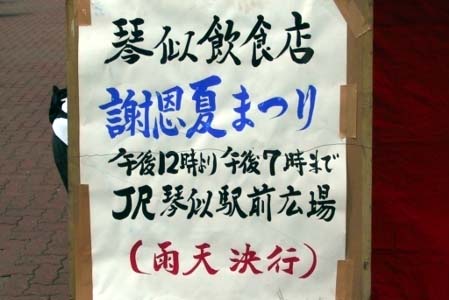 琴似飲食店
謝恩夏まつり
午後12時より午後7時まで
JR琴似駅前広場
(雨天決行)